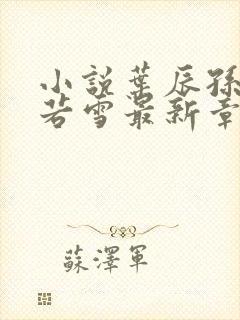 小說葉辰孫
若雪最新章
蘇澤軍